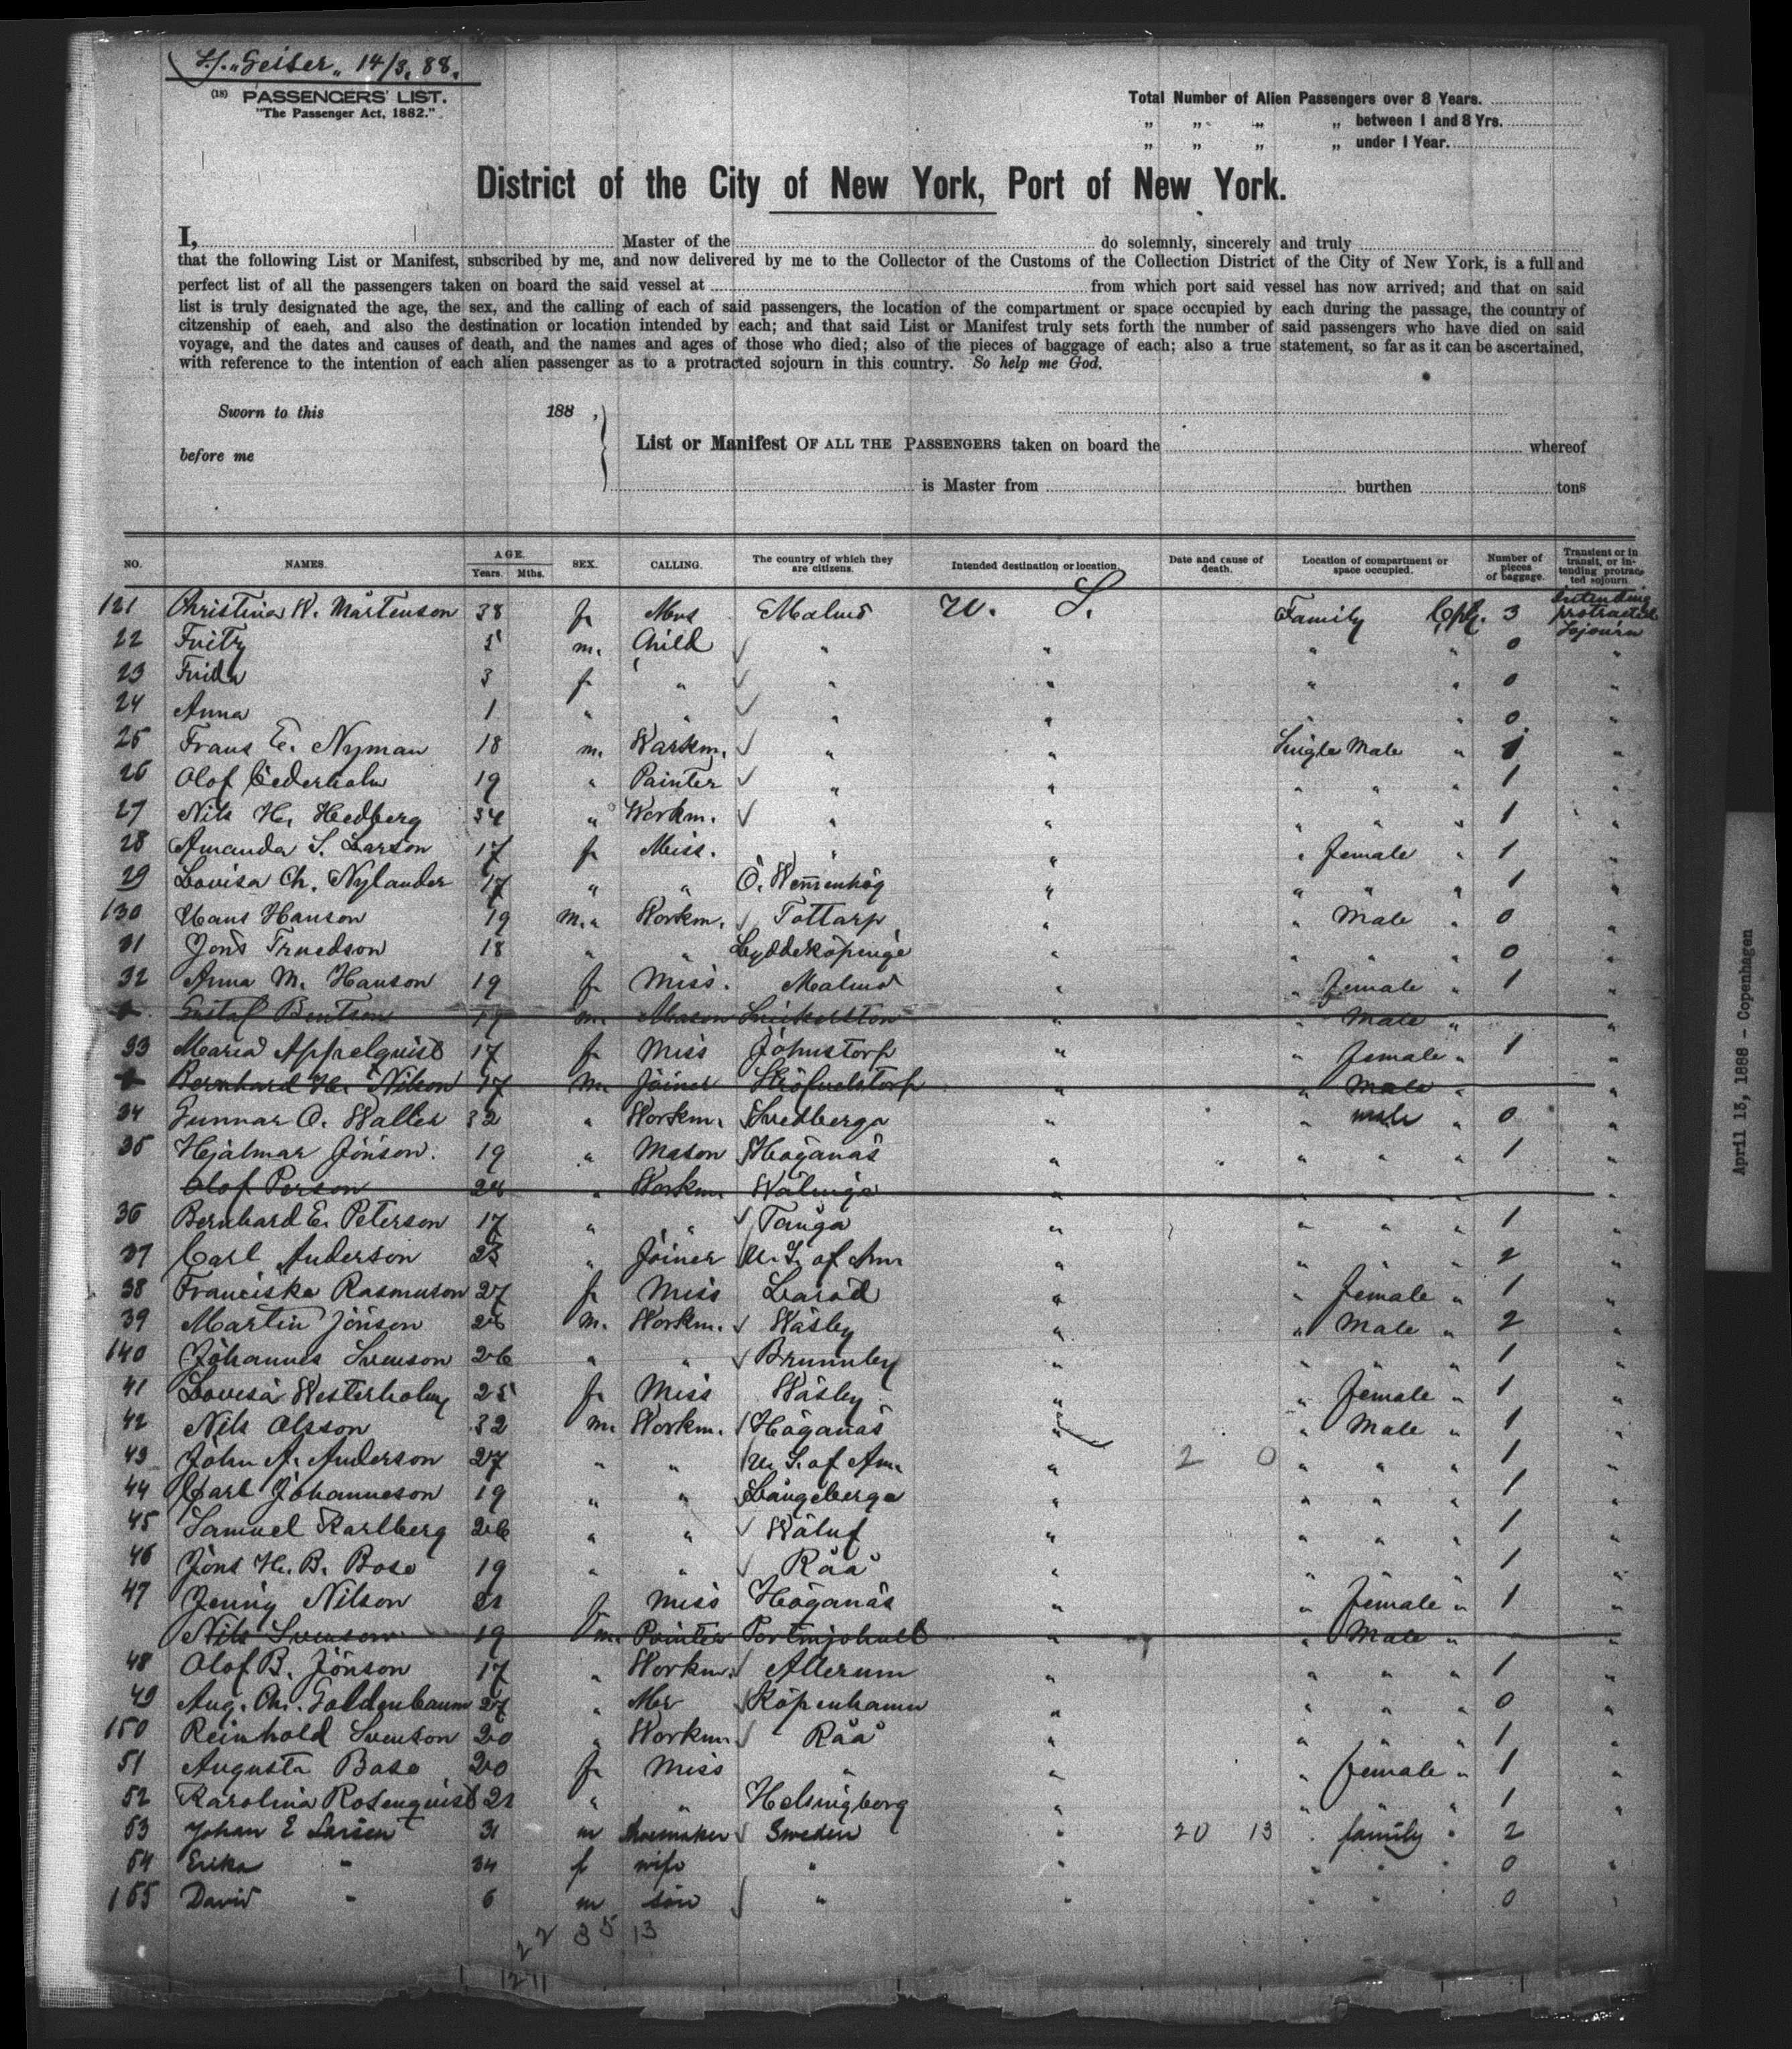 S/S. „Geiser„ 14/3. 88.
(18) PASSENGERS' LIST.
"The Passenger Act, 1882."
Total Number of Alien Passengers over 8 Years.
„ „ „ „ between 1 and 8 Yrs.
„ „ „ „ under 1 Year.
District of the City of New York, Port of New York.
I, Master of the do solemnly, sincerely and truly
that the following List or Manifest, subscribed by me, and now delivered by me to the Collector of the Customs of the Collection District of the City of New York, is a full and
perfect list of all the passengers taken on board the said vessel at from which port said vessel has now arrived; and that on said
list is truly designated the age, the sex, and the calling of each of said passengers, the location of the compartment or space occupied by each during the passage, the country of
citzenship of eaeh, and also the destination or location intended by each; and that said List or Manifest truly sets forth the number of said passengers who have died on said
voyage, and the dates and causes of death, and the names and ages of those who died; also of the pieces of baggage of each; also a true statement, so far as it can be ascertained,
with reference to the intention of each alien passenger as to a protracted sojourn in this country. So help me God.
Sworn to this 188 ,
before me
List or Manifest OF ALL THE PASSENGERS taken on board the whereof
is Master from burthen tons
NO. NAMES. AGE. Years. Mths. SEX. CALLING. The country of which they are citizens. Intended destination or location. Date and cause of death. Location of compartment or space occupied. Number of pieces of baggage. Transient or in transit, or intending protracted sojourn.
121 Christina W. Mårtenson 38 f Mrs Malmö U. S. Family Cpt. 3 Intending protracted Sojourn
22 Fritz 5 m. Child " " " " 0 "
23 Frida 3 f " " " " " 0 "
24 Anna 1 " " " " " 0 "
25 Frans E. Nyman 18 m. Warkm. " " Single Male " 1 "
26 Olof Cederholm 19 " Painter " " " " " 1 "
27 Nils H. Hedberg 34 " Workm. " " " " " 1 "
28 Amanda S. Larson 17 f Miss. " " " female " 1 "
29 Lovisa Ch. Nylander 17 " " Ö. Wemenhög " " " " 1 "
130 Hans Hanson 19 m. Workm. Tottarp " " Male " 0 "
31 Jöns Truedson 18 " " Lyddeköpinge " " " " 0 "
32 Anna M. Hanson 19 f Miss. Malmö " " female " 1 "
Gustaf Bentson 19 m. Mason " " Male " "
33 Maria Appelquist 17 f Miss Johnstorp " " female " 1 "
Bernhard H. Nilson 17 m. Joiner Ströfvelstorp " " Male " "
34 Gunnar O. Waller 32 " Workm. Svedberga " " male " 0 "
35 Hjalmar Jönson. 19 " Mason Höganäs " " " " 1 "
Olof Person 24 " Workm. Wälinge " " " " "
36 Bernhard E. Peterson 17 " " Tånga " " " " 1 "
37 Carl Anderson 23 " Joiner U. S. of Am. " " " " 2 "
38 Franciska Rasmuson 27 f Miss Laröd " " female " 1 "
39 Martin Jönson 26 m. Workm. Wäsby " " Male " 2 "
140 Johannes Svenson 26 " " Brunnby " " " " 1 "
41 Lovisa Westerholm 25 f Miss Wäsby " " female " 1 "
42 Nils Olsson 32 m. Workm. Höganäs " " Male " 1 "
43 John A. Anderson 27 " " U. S. of Am. " 2 0 " " " 1 "
44 Carl Johanneson 19 " " Långeberga " " " " 1 "
45 Samuel Karlberg 26 " " Wäluf " " " " 1 "
46 Jöns H. B. Bose 19 " " Råå " " " " 1 "
47 Jenny Nilson 21 f Miss Höganäs " " female " 1 "
Nils Svenson 19 m. Painter " " Male " "
48 Olof B. Jönson 17 " Workm. Allerum " " " " 1 "
49 Aug. Chr. Goldenbaum 27 " Mr Köpenhamn " " " " 0 "
150 Reinhold Svenson 20 " Workm. Råå " " " " 1 "
51 Augusta Bose 20 f Miss " " " female " 1 "
52 Karolina Rosenquist 21 " " Helsingborg " " " " 1 "
53 Johan E Larsen 31 m Shoemaker Sweden " 20 13 " family " 2 "
54 Erika " 34 f wife " " " " " 0 "
155 David " 6 m son " " " " 0 "
22 35 13
1211
April 13, 1888 - Copenhagen